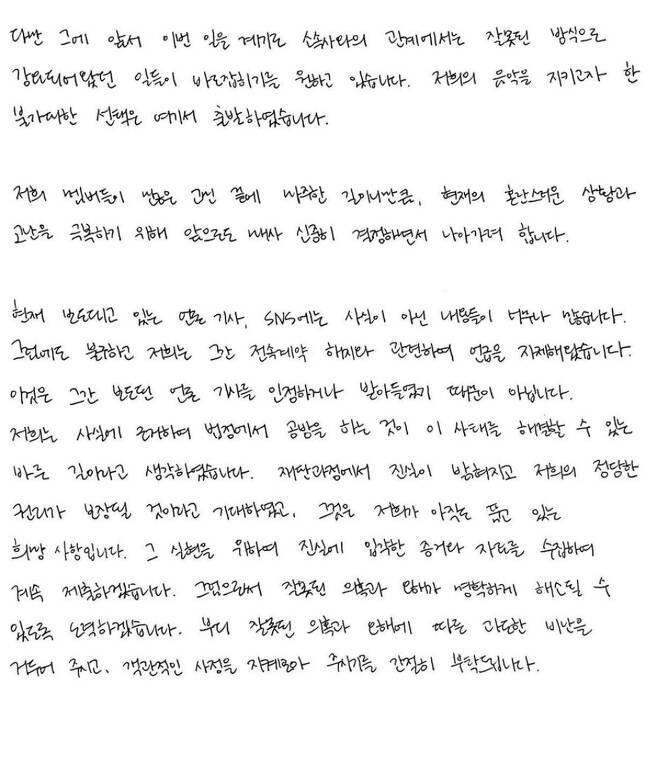 다만 그에 앞서 이번 일을 계기로 소속사와의 관계에서는 잘못된 방식으로
강요되어왔던 일들이 바로잡히기를 원하고 있습니다. 저희의 음악을 지키고자 한
불가피한 선택은 여기서 출발하였습니다.
저희 멤버들이 많은 고민 끝에 마주한 길이니만큼, 현재의 혼란스러운 상황과
고난을 극복하기 위해 앞으로도 매사 신중히 결정해면서 나아가려 합니다.
현재 보도되고 있는 언론 기사, SNS에는 사실이 아닌 내용들이 너무나 많습니다.
그럼에도 불구하고 저희는 그간 전속계약 해지와 관련하여 언급을 자제해왔습니다.
이것은 그간 보도된 언론 기사를 인정하거나 받아들였기 때문이 아닙니다.
저희는 사실에 근거하여 법정에서 공방을 하는 것이 이 사태를 해결할 수 있는
바른 길이라고 생각하였습니다. 재판과정에서 진실이 밝혀지고 저희의 정당한
권리가 보장될 것이라고 기대하였고, 그것은 저희가 아직도 품고 있는
희망 사항입니다. 그 실현을 위하여 진실에 입각한 증거와 자료를 수집하여
계속 제출하겠습니다. 그럼으로써 잘못된 의혹과 오해가 명확하게 해소될 수
있도록 노력하겠습니다. 부디 잘못된 의혹과 오해에 따른 과도한 비난을
거두어 주시고, 객관적인 사정을 지켜보아 주시기를 간절히 부탁드립니다.